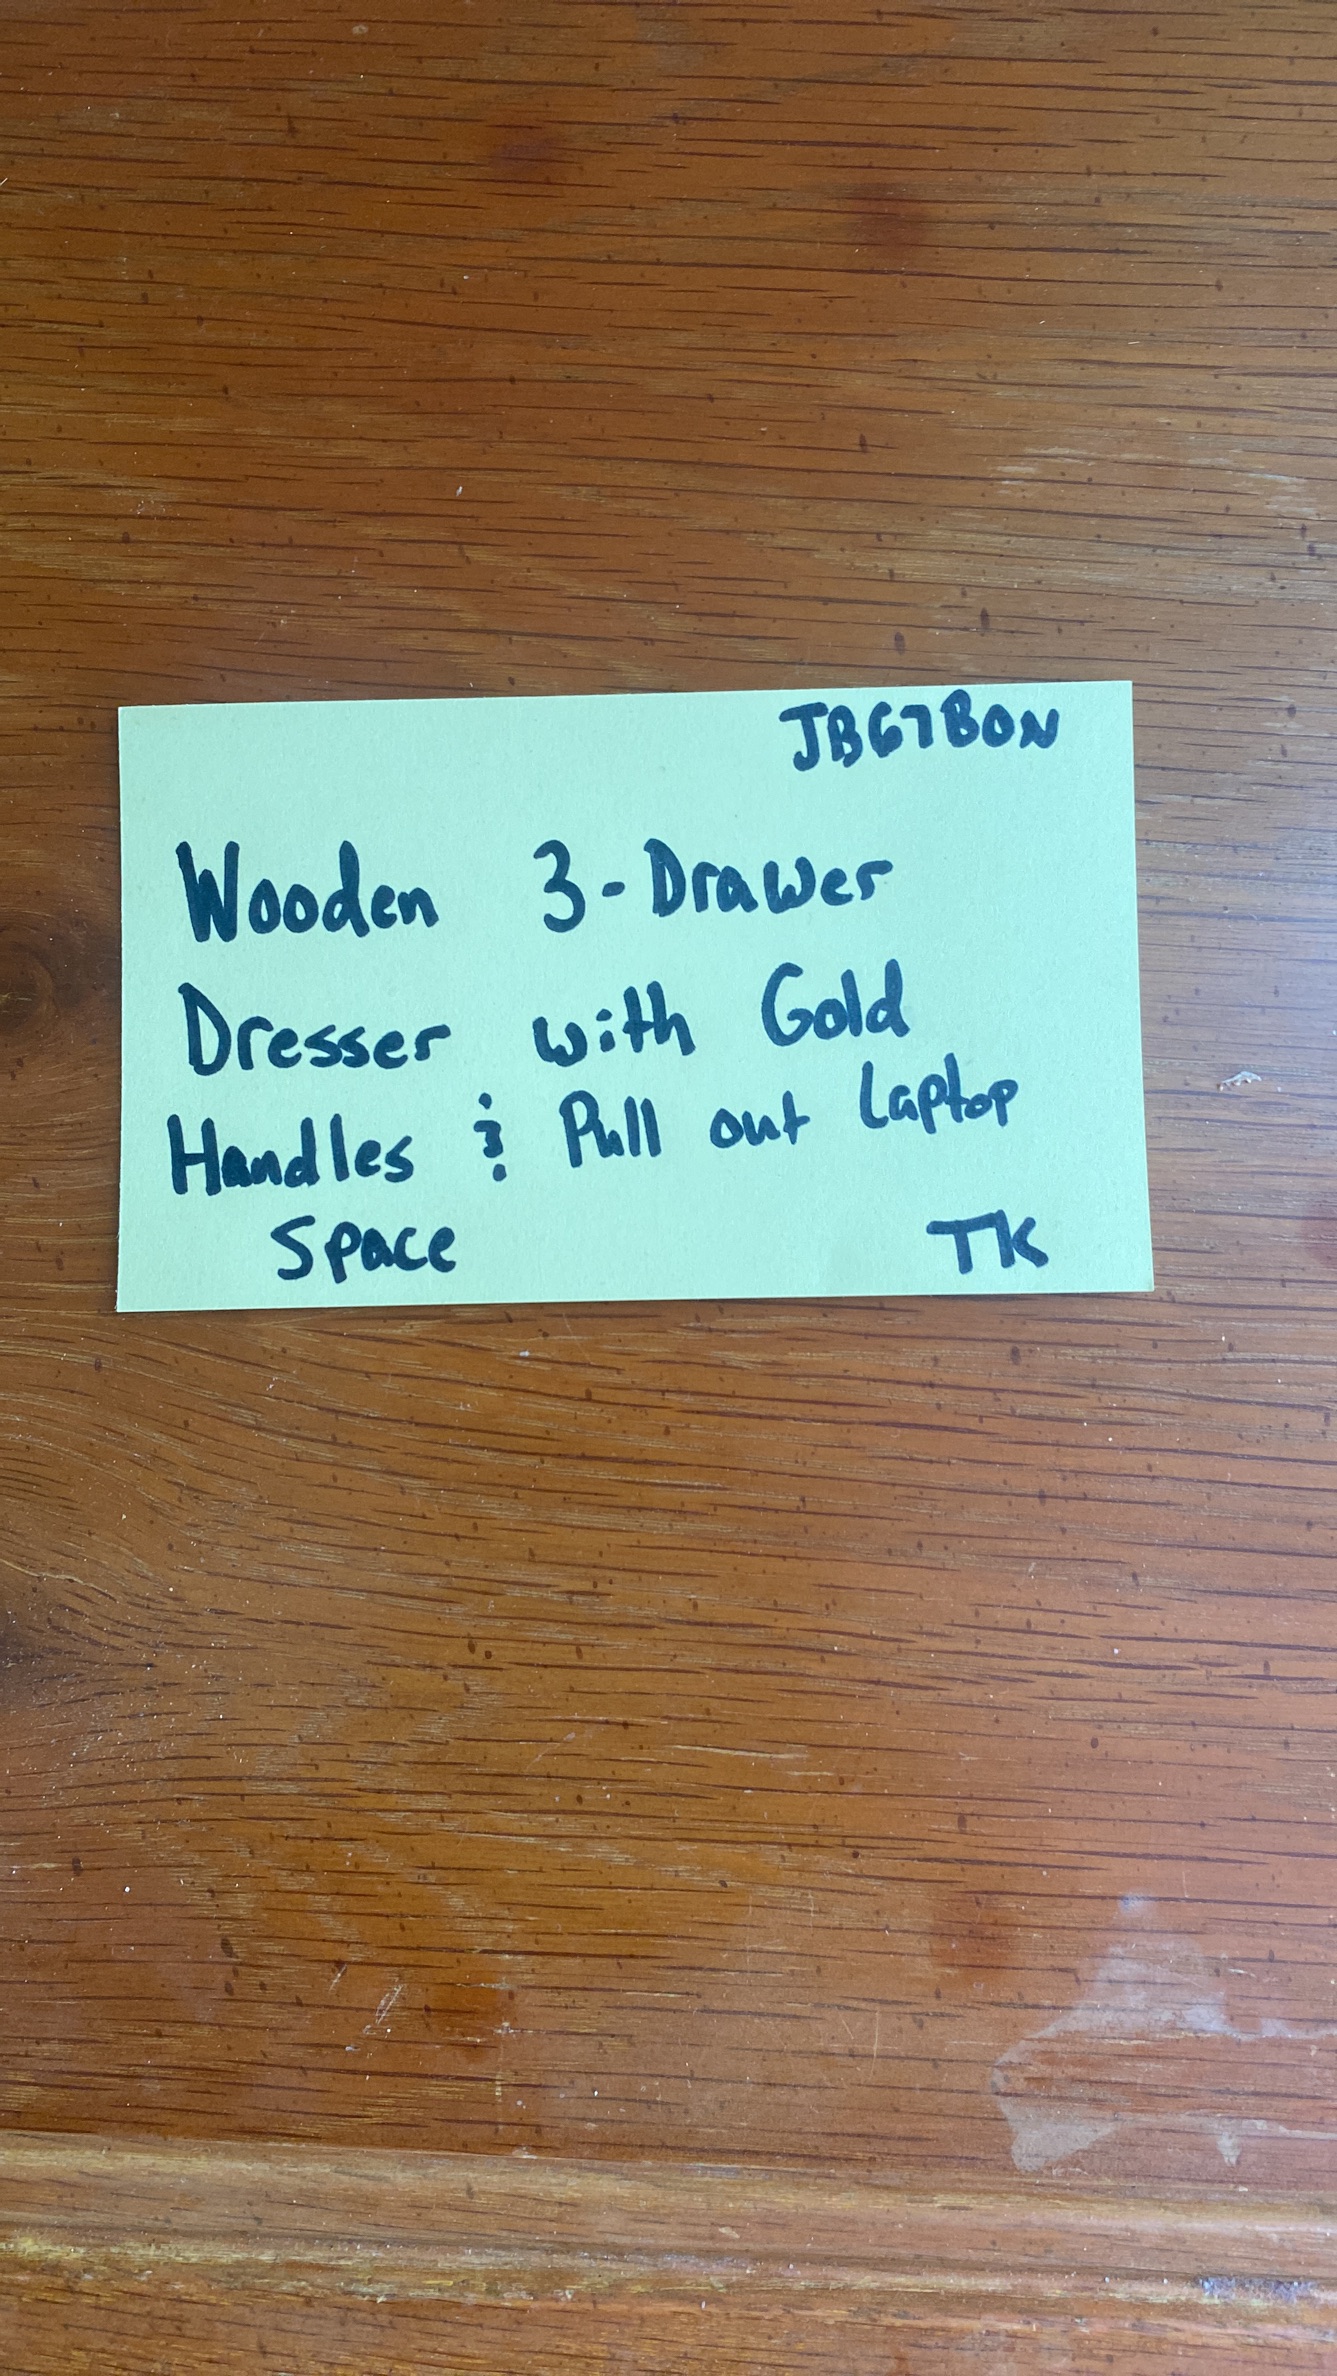 JB67BON
Wooden 3-Drawer
Dresser with Gold
Handles & Pull out Laptop
Space TK